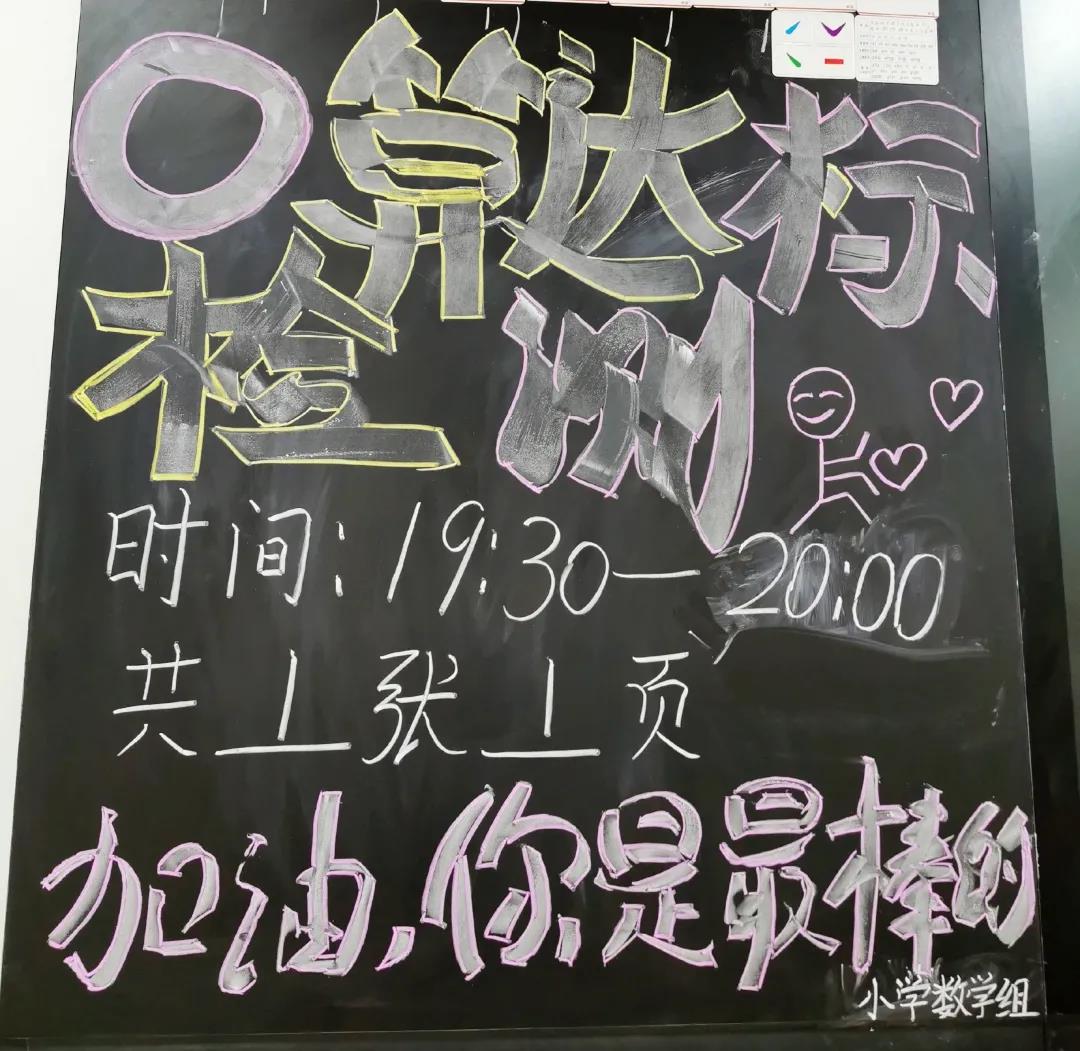 口算达标
检测
时间:19:30—20:00
共1张1页
加油,你是最棒的
小学数学组